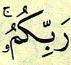 رَبِّكُمْ ۚ